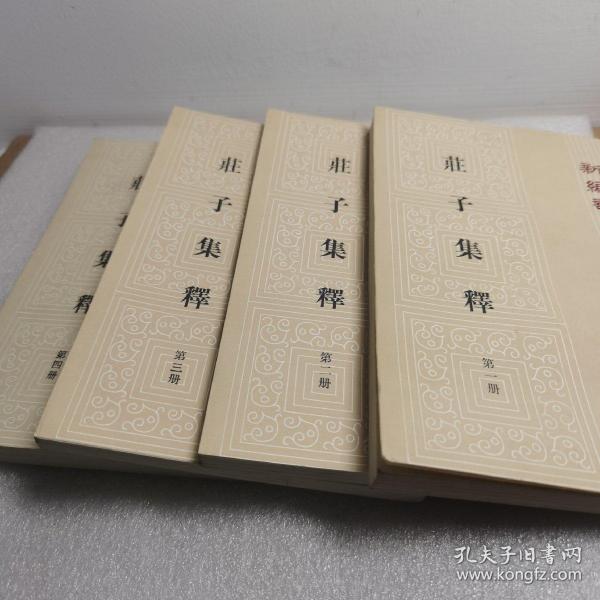 莊子集釋
第一册
新編
莊子集釋
第二册
莊子集釋
第三册
莊子集釋
第四册
孔夫子旧书网
www.kongfz.com